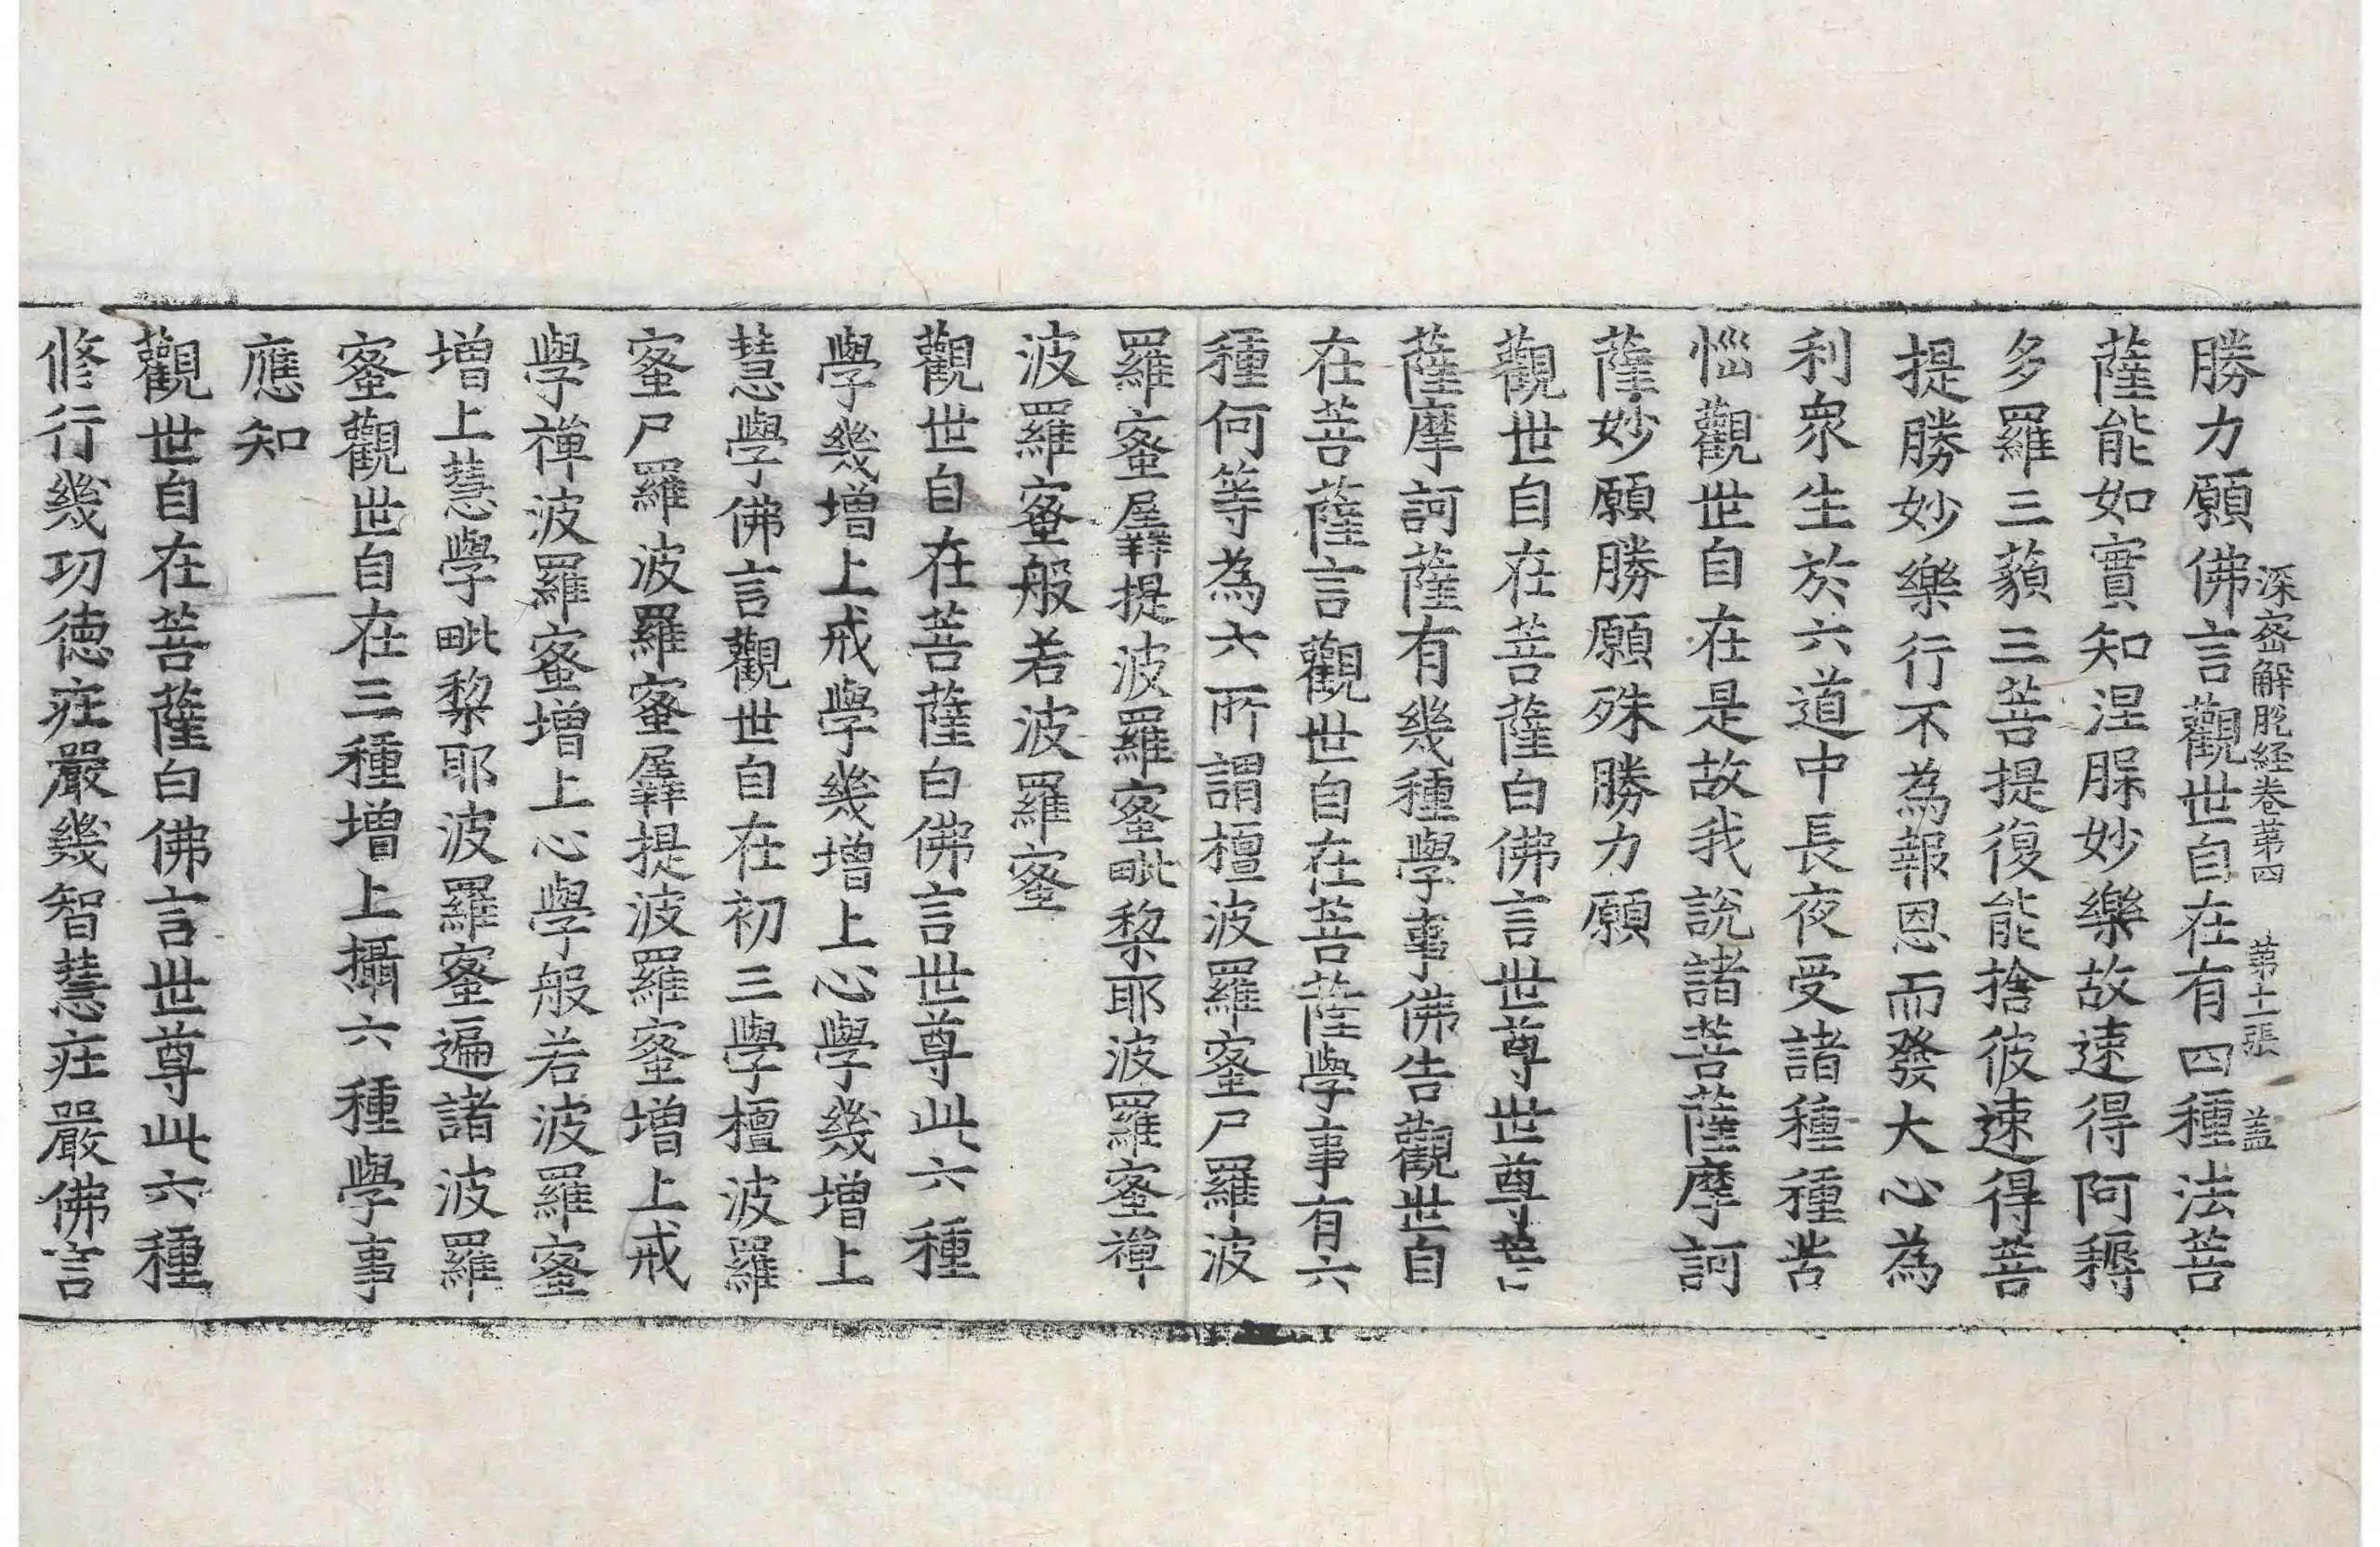 深宻解脫経卷苐四 苐十二張 盖
勝力願佛言觀世自在有四種法菩
薩能如實知涅𦙾妙樂故速得阿耨
多羅三藐三菩提復能捨彼速得菩
提勝妙樂行不為報恩而發大心為
利衆生於六道中長夜受諸種種苦
惱觀世自在是故我說諸菩薩摩訶
薩妙願勝願殊勝力願
觀世自在菩薩白佛言世尊世尊菩
薩摩訶薩有幾種學事佛告觀世自
在菩薩言觀世自在菩薩學事有六
種何等為六所謂檀波羅蜜尸羅波
羅蜜羼提波羅蜜毗棃耶波羅蜜禪
波羅蜜般若波羅蜜
觀世自在菩薩白佛言世尊此六種
學幾增上戒學幾增上心學幾增上
慧學佛言觀世自在初三學檀波羅
蜜尸羅波羅蜜羼提波羅蜜增上戒
學禪波羅蜜增上心學般若波羅蜜
增上慧學毗棃耶波羅蜜遍諸波羅
蜜觀世自在三種增上攝六種學事
應知
觀世自在菩薩白佛言世尊此六種
修行幾功德莊嚴幾智慧莊嚴佛言